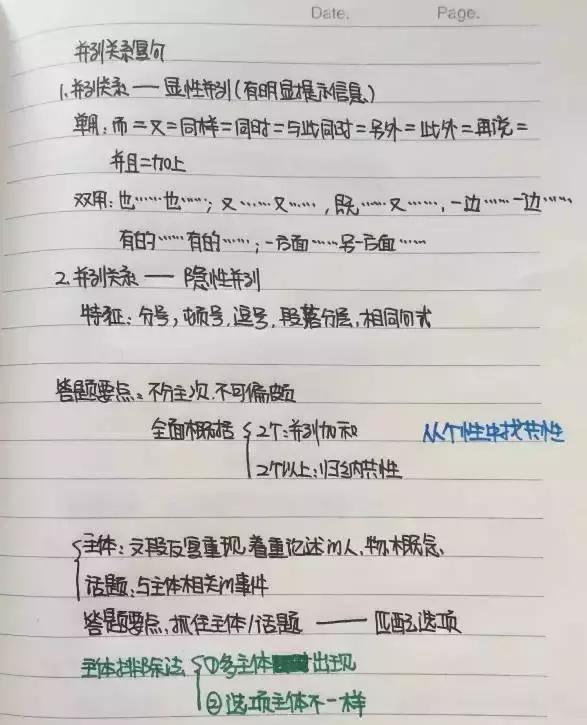 Date. Page.
并列关系复句
1.并列关系 —— 显性并列(有明显提示信息)
单用:而=又=同样=同时=与此同时=另外=此外=再说=
并且=加上
双用:也……也……; 又……又……, 既……又……, 一边……一边……
有的……有的……; 一方面……另一方面……
2.并列关系 —— 隐性并列
特征:分号,顿号,逗号,段落分层,相同句式
答题要点:不分主次,不可偏颇
全面概括 { 2个:并列加和 从个性中找共性
2个以上:归纳共性
{ 主体:文段反复重现,着重论述的人,物,概念、
话题:与主体相关的事件
答题要点,抓住主体/话题 —— 匹配选项
主体排除法 { ①多主体 出现
②选项主体不一样